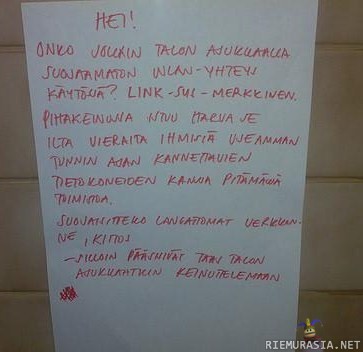 HEI!
ONKO JOLLAIN TALON ASUKKAALLA
SUOJAAMATON WLAN-YHTEYS
KÄYTÖSSÄ? LINK-SYS-MERKKINEN.
PIHAKEINUSSA ISTUU HARVA SE
ILTA VIERAITA IHMISIÄ USEAMMAN
TUNNIN AJAN KANNETTAVIEN
TIETOKONEIDEN KANSSA PITÄMÄSSÄ
TOIMISTOA.
SUOJAISITTEKO LANGATTOMAT VERKKON-
NE, KIITOS
-SILLOIN PÄÄSISIVÄT TAAS TALON
ASUKKAATKIN KEINUTTELEMAAN
RIEMURASIA.NET